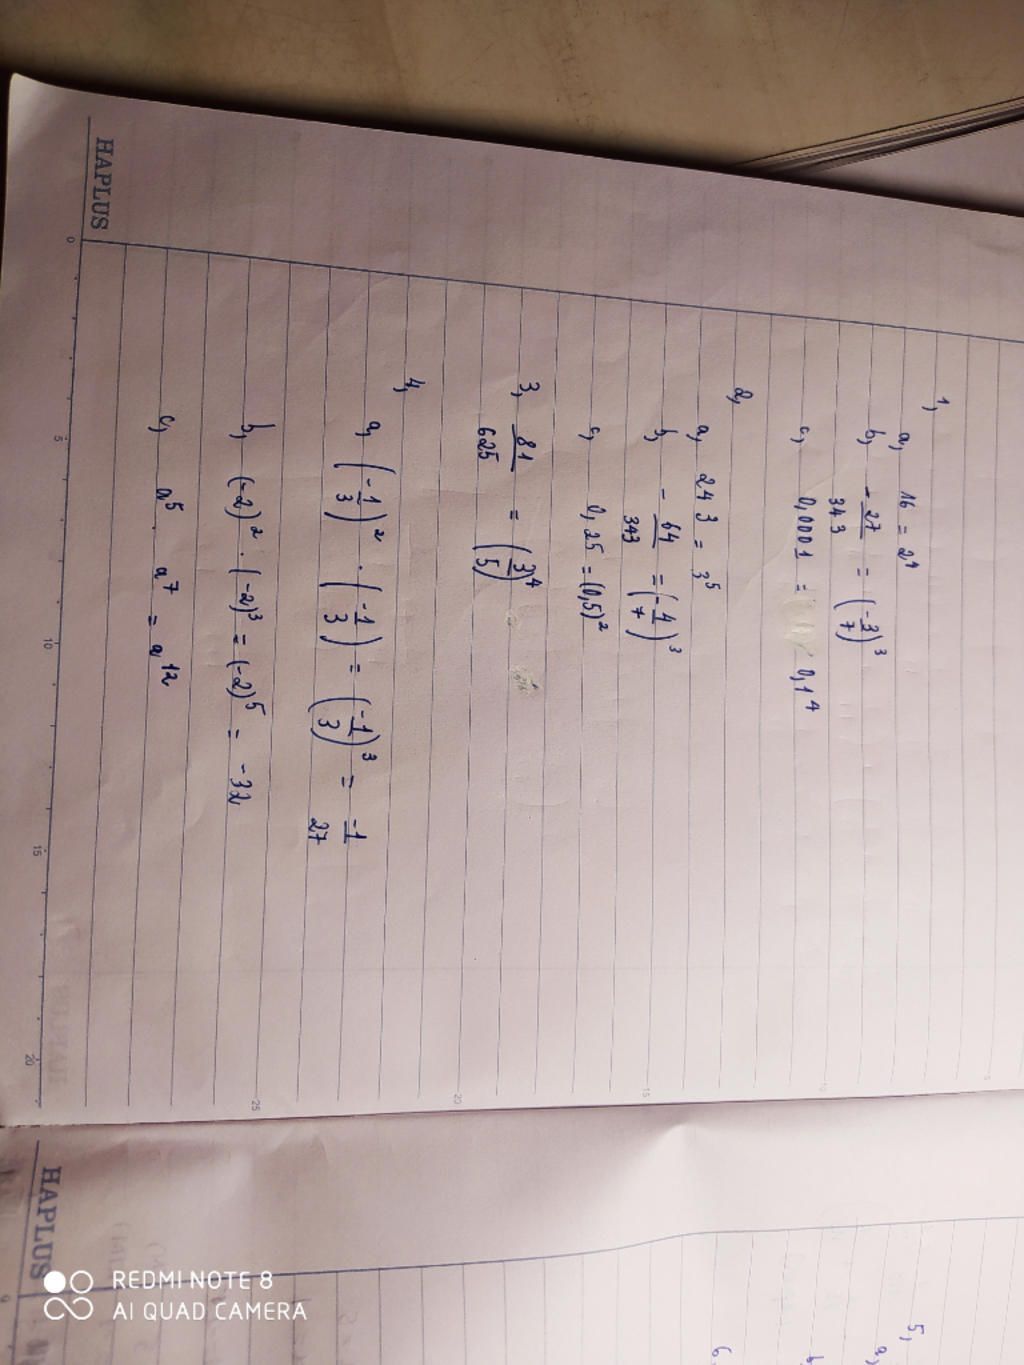 1,
a, 16 = 2⁴
b, -27/343 = (-3/7)³
c, 0,0001 = 0,1⁴
2,
a, 243 = 3⁵
b, - 64/343 = (-4/7)³
c, 0,25 = (0,5)²
3, 81/625 = (3/5)⁴
4,
a, (-1/3)² . (-1/3) = (-1/3)³ = -1/27
b, (-2)² . (-2)³ = (-2)⁵ = -32
c, a⁵ . a⁷ = a¹²
HAPLUS
0 5 10 15 20
5 10 15 20 25
HAPLUS
0
5,
a,
b,
6,
REDMI NOTE 8
AI QUAD CAMERA